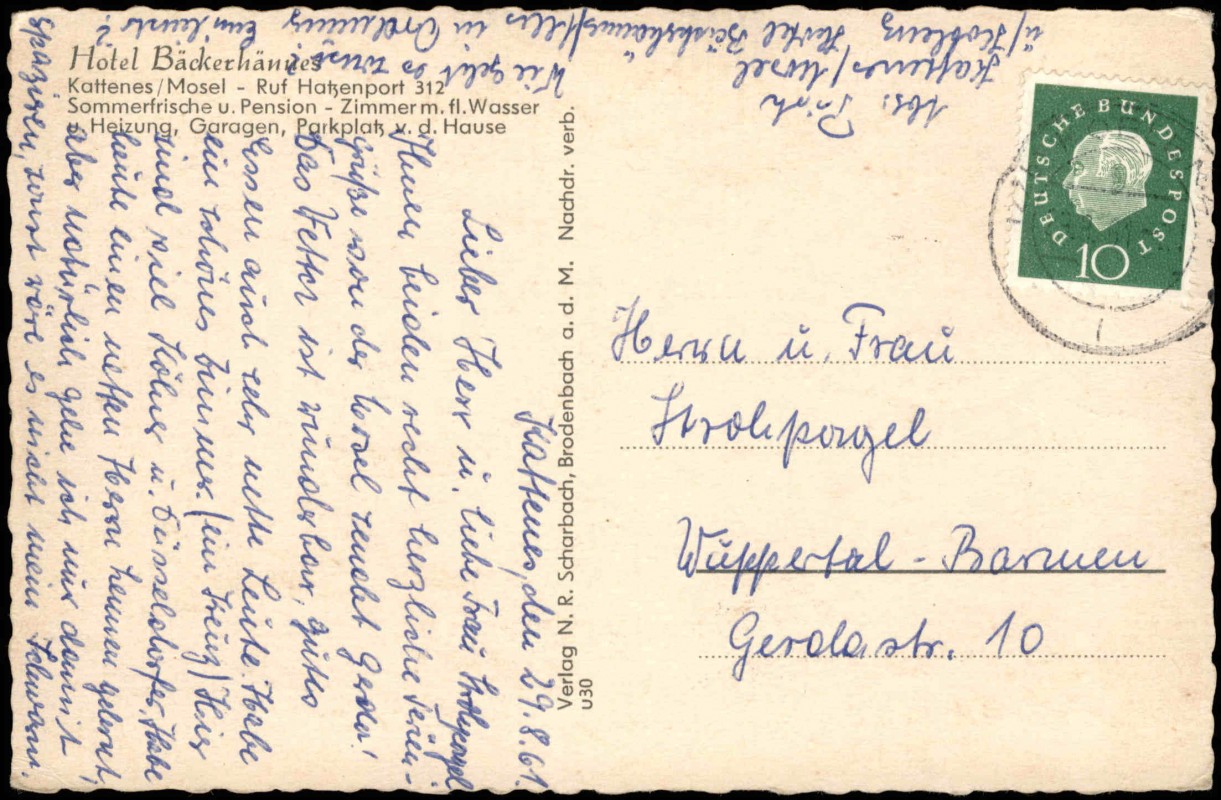 Hotel Bäckerhännes
Kattenes/Mosel - Ruf Hatzenport 312
Sommerfrische u. Pension - Zimmer m. fl. Wasser
u. Heizung, Garagen, Parkplatz v. d. Hause
Kattenes, den 29.8.61.
Lieber Herr u. liebe Frau Strohpagel
Ihnen beiden recht herzliche
Grüße von der Mosel sendet Gerda!
Das Wetter ist wunderbar, gutes
Essen und sehr nette Leute. Habe
ein schönes Zimmer. Hier
sind viel Kölner u. Düsseldorfer, habe
heute einen netten Herrn kennen gelernt,
aber natürlich gehe ich nur damit
spaziren, sonst wäre es nicht mein
Wie geht es sonst?
in Ordnung
Abs:
Kattenes/Mosel
ü/Koblenz Hotel Bäckerhännes
Verlag N. R. Scharbach, Brodenbach a. d. M. Nachdr. verb.
u30
DEUTSCHE BUNDESPOST
10
Herrn u. Frau
Strohpagel
Wuppertal - Barmen
Gerdastr. 10